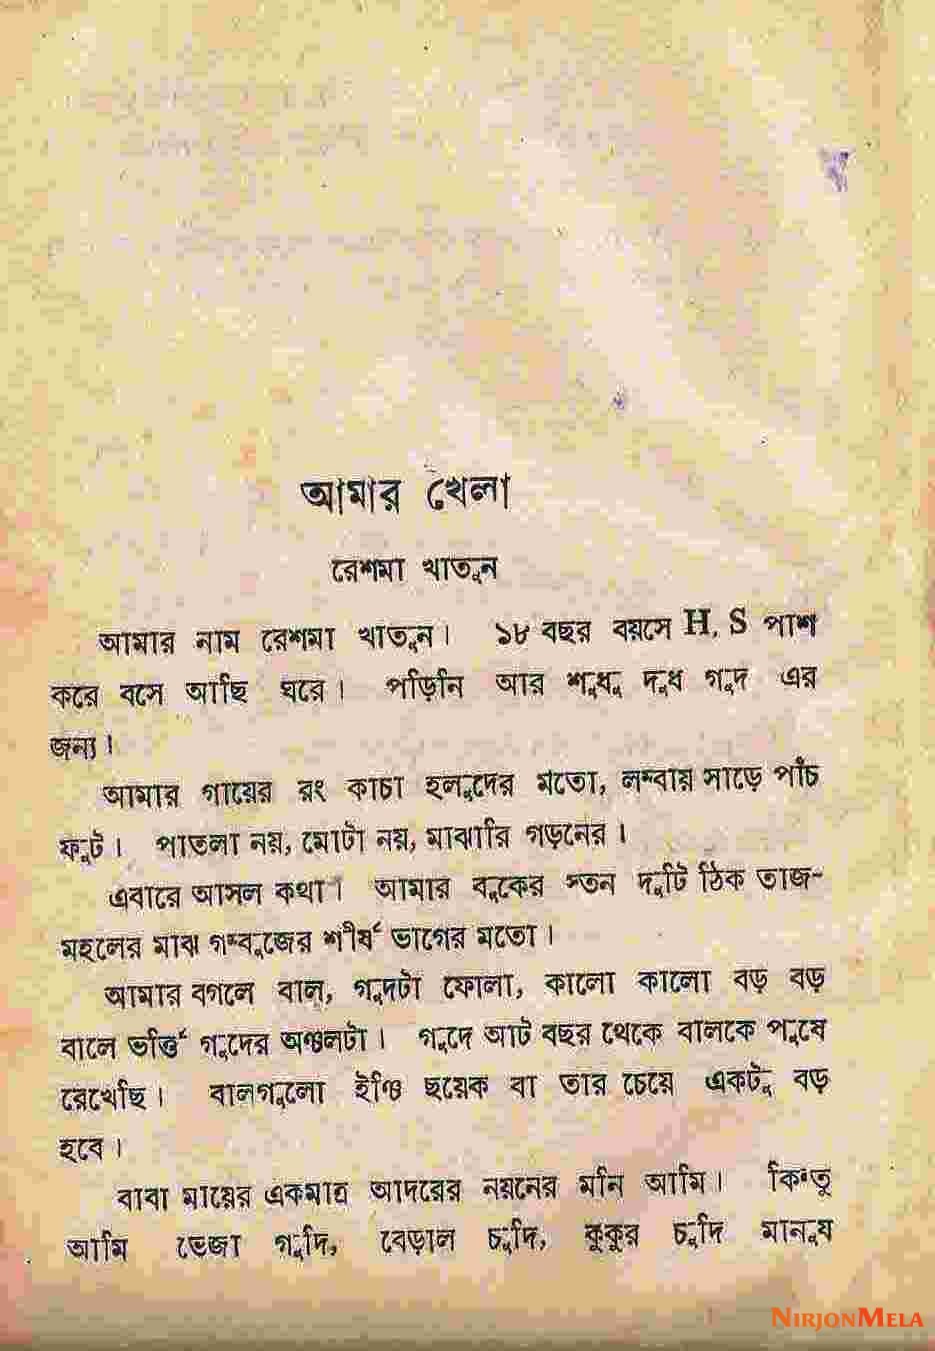 আমার খেলা
রেশমা খাতুন
আমার নাম রেশমা খাতুন। ১৮ বছর বয়সে H. S পাশ
করে বসে আছি ঘরে। পড়িনি আর শুধু দুধ গুদ এর
জন্য।
আমার গায়ের রং কাচা হলুদের মতো, লম্বায় সাড়ে পাঁচ
ফুট। পাতলা নয়, মোটা নয়, মাঝারি গড়নের।
এবারে আসল কথা। আমার বুকের স্তন দুটি ঠিক তাজ-
মহলের মাঝ গম্বুজের শীর্ষ ভাগের মতো।
আমার বগলে বাল, গুদটা ফোলা, কালো কালো বড় বড়
বালে ভর্ত্তি গুদের অঞ্চলটা। গুদে আট বছর থেকে বালকে পুষে
রেখেছি। বালগুলো ইঞ্চি ছয়েক বা তার চেয়ে একটু বড়
হবে।
বাবা মায়ের একমাত্র আদরের নয়নের মনি আমি। কিন্তু
আমি ভেজা গুদি, বেড়াল চুদি, কুকুর চুদি মানুষ
NIRJONMELA